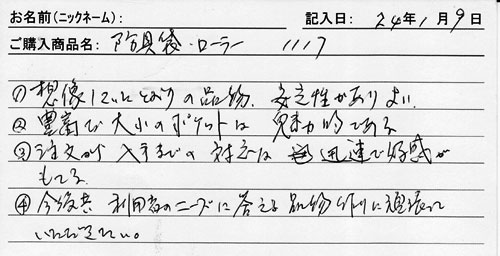 お名前(ニックネーム): 記入日: 24年1月9日
ご購入商品名: 防具袋・ローラー
①想像していたとおりの品物、安定性がありよい。
②豊富な大小のポケットは魅力的である
③注文から入手までの対応は迅速で好感が
もてる。
④今後共利用者のニーズに答える品物作りに頑張って
いただきたい。